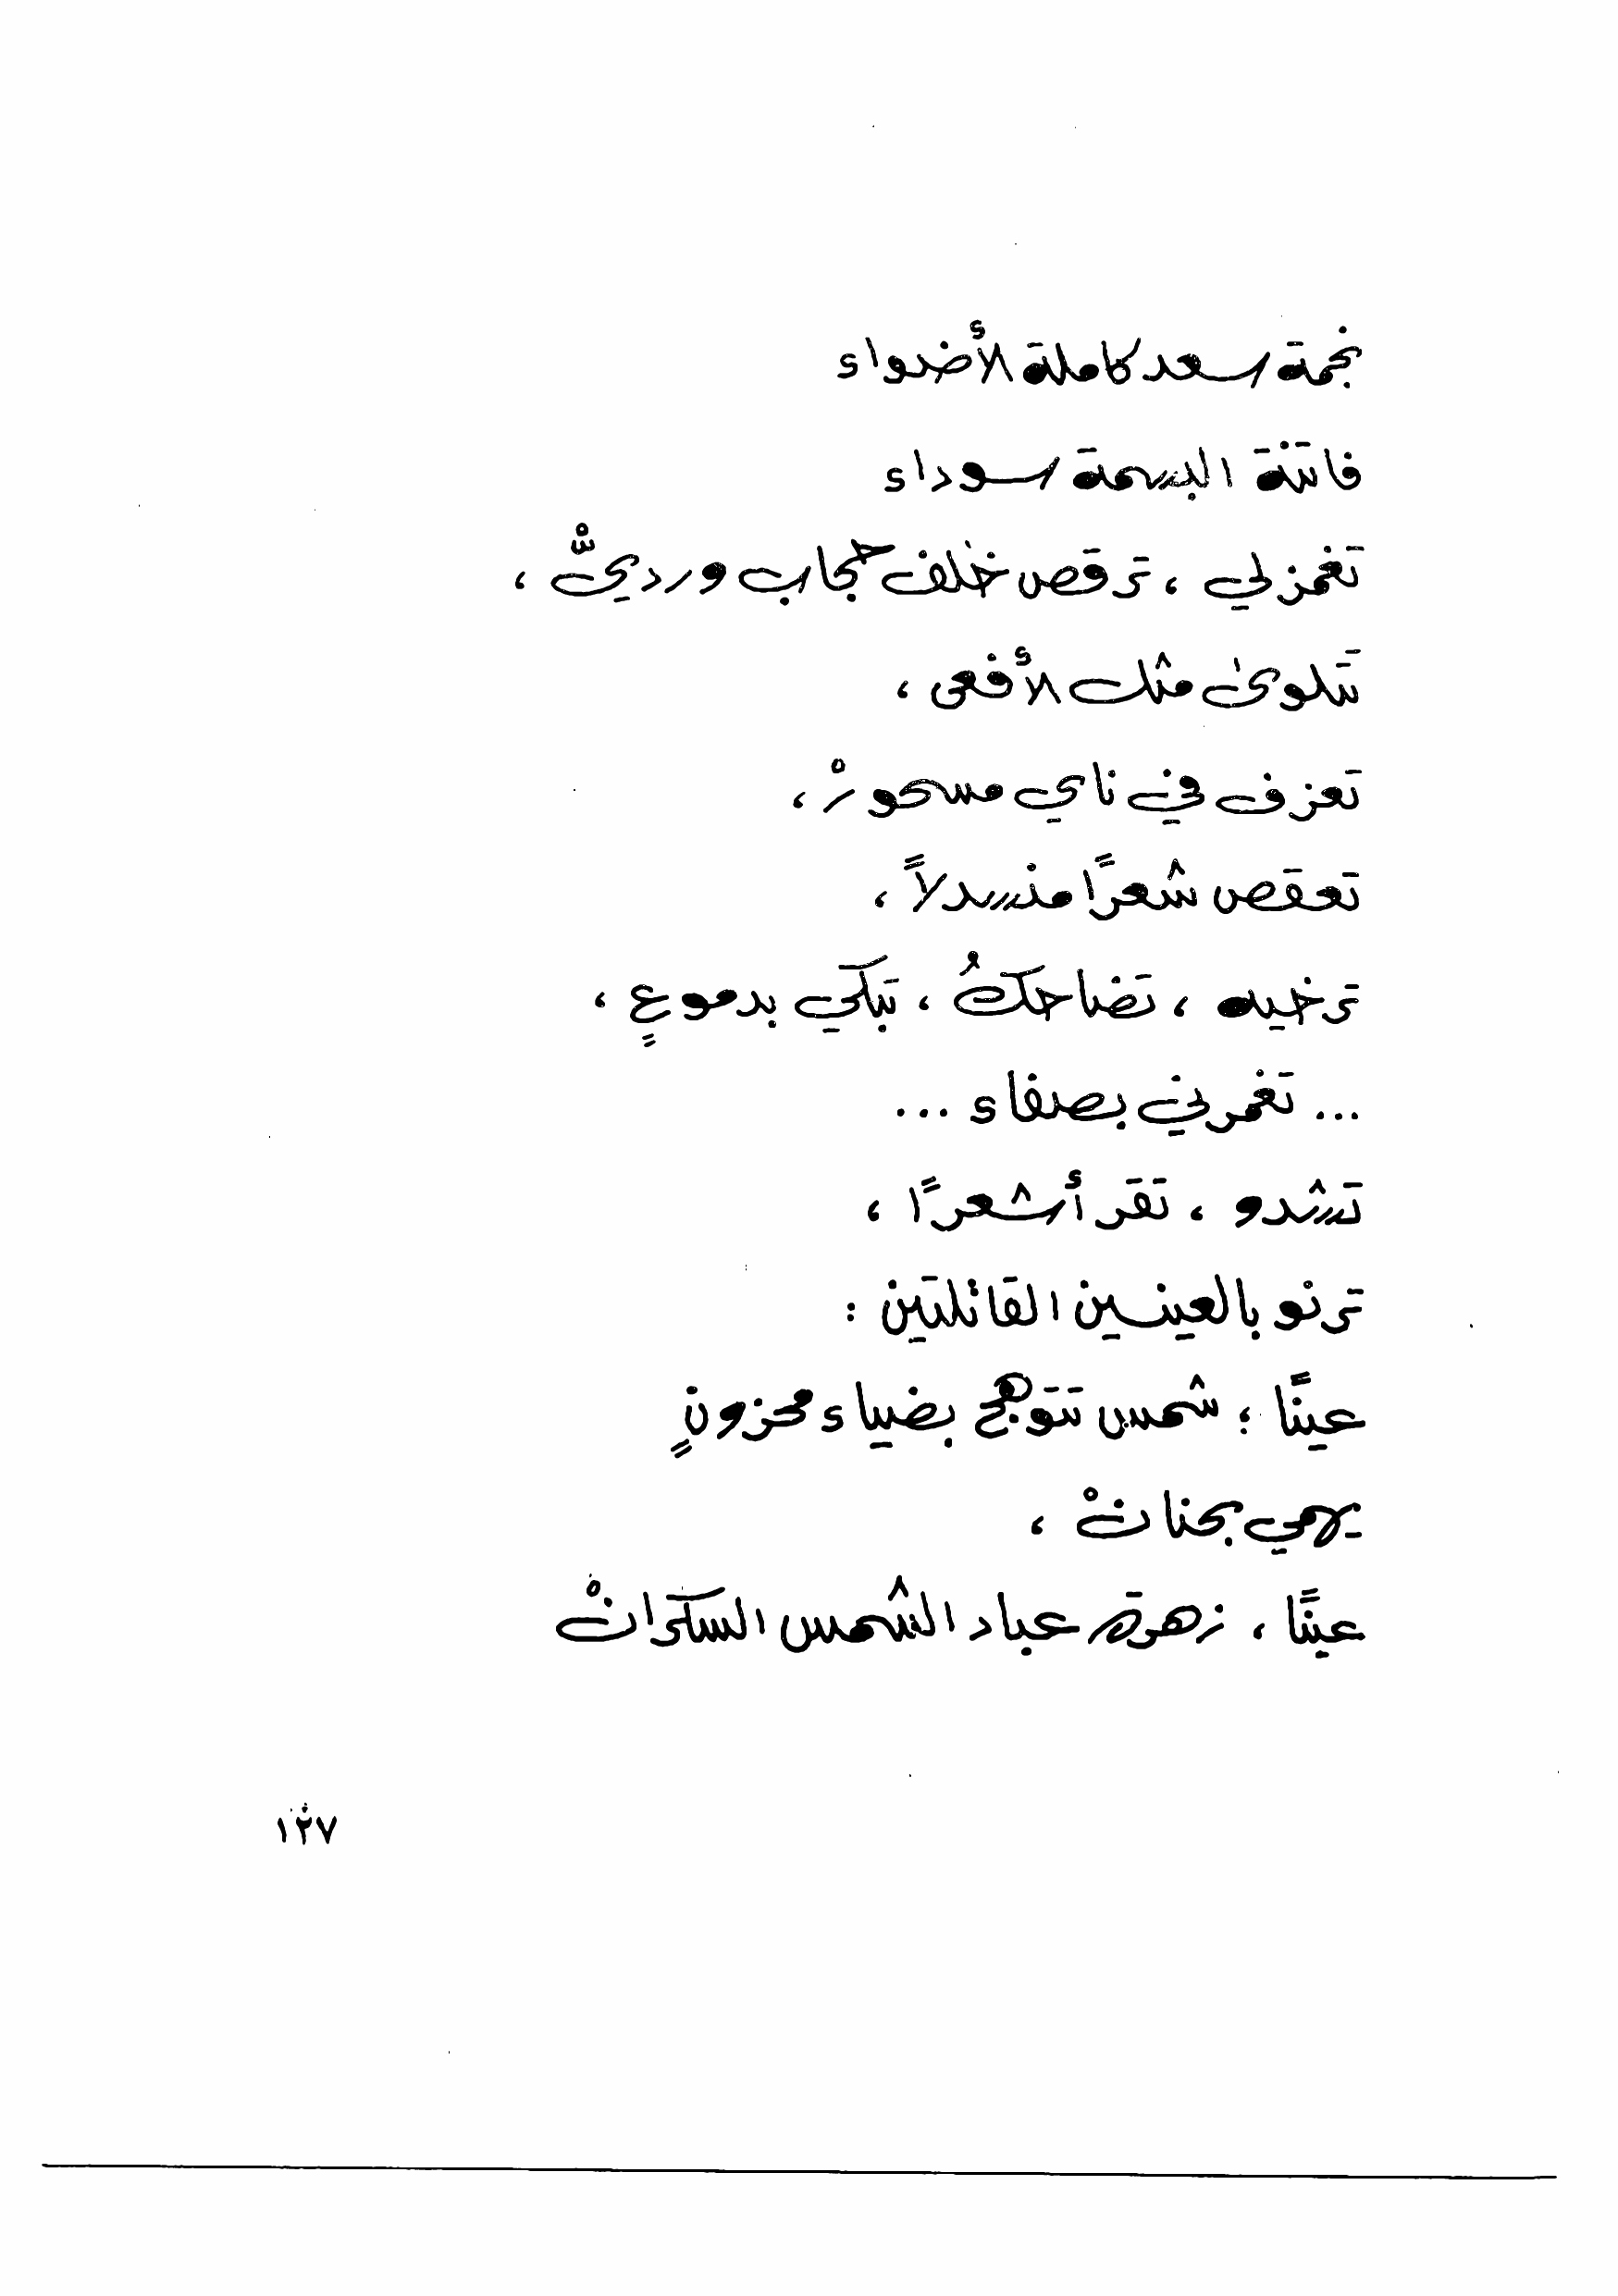 نجمة سعد كاملة الأضواء
فاتنة البسمة سوداء
تغمز لي ، ترقص خلف حجاب ورديْ ،
تتلوى مثل الأفعى ،
تعزف في ناي مسحورْ ،
تعقص شعرًا منسدلاً ،
ترخيه ، تضاحكُ ، تبكي بدموعٍ ،
... تغمرني بصفاء ...
تشدو ، تقرأ شعرًا ،
ترنو بالعينين القاتلتين :
عينًا ؛ شمس تتوهج بضياء محزونٍ
يهمي بحنانْ ،
عينًا ، زهرة عباد الشمس السكرانْ
١٢٧